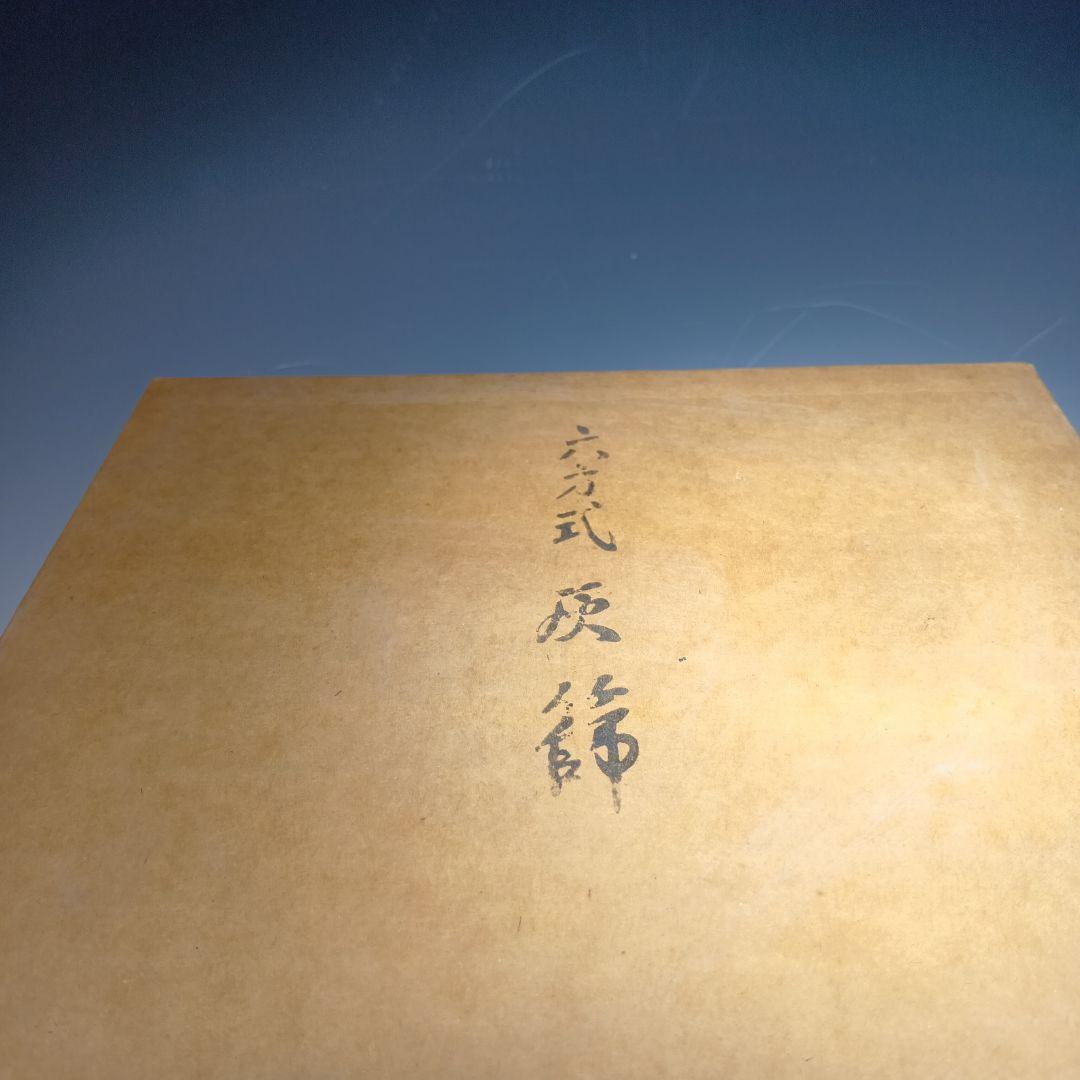 六方式 灰篩